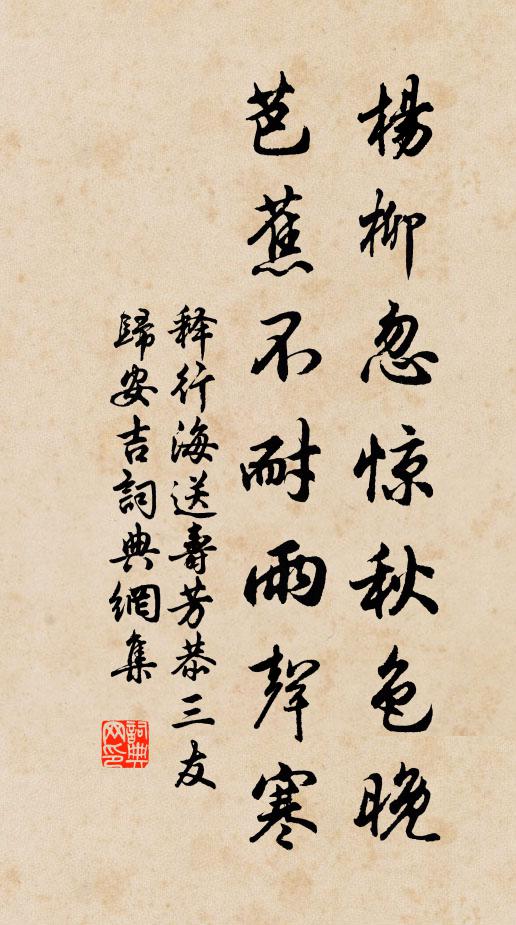 楊柳忽惊秋色晚
芭蕉不耐雨聲寒
释行海送壽芳恭三友
歸安吉詞典網集
詞典
网印